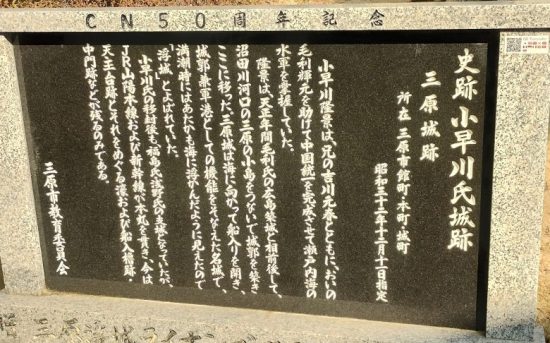 CN50周年記念
史跡 小早川氏城跡
三原城跡
所在 三原市館町・本町・城町
昭和三十二年十二月十一日指定
小早川隆景は、兄の吉川元春とともに、おいの
毛利輝元を助けて中国統一を完成させ、瀬戸内海の
水軍を掌握していた。
隆景は、天正年間毛利氏の広島築城と相前後して、
沼田川河口の三原の小島をつないで城郭を築き
ここに移った。三原城は海に向かって船入りを開き、
城郭兼軍港としての機能をそなえた名城で、
満潮時にはあたかも海に浮かんだように見えたので
浮城とよばれていた。
小早川氏の移封後は福島氏浅野氏の支城となっていたが、
JR山陽本線および新幹線が本丸を貫き、今は
天主台跡とそれをめぐる濠および船入櫓跡・
中門跡などが残るのみである。
三原市教育委員会